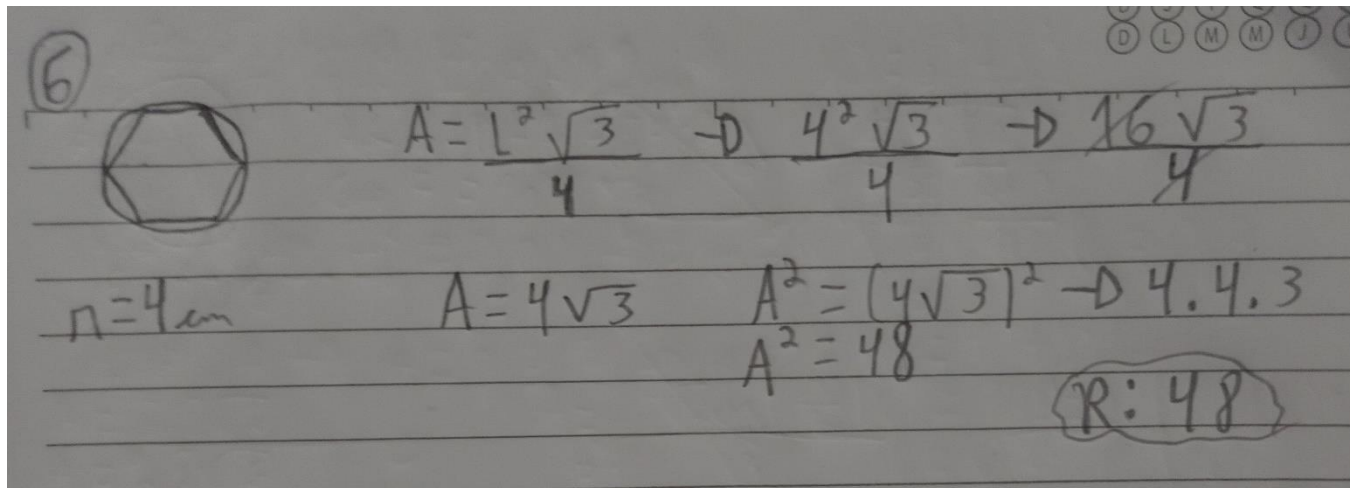 D L M M J
6
A = L² √3 / 4 -D 4² √3 / 4 -D 16 √3 / 4
r = 4 cm A = 4√3 A² = (4√3)² -D 4.4.3
A² = 48
R: 48